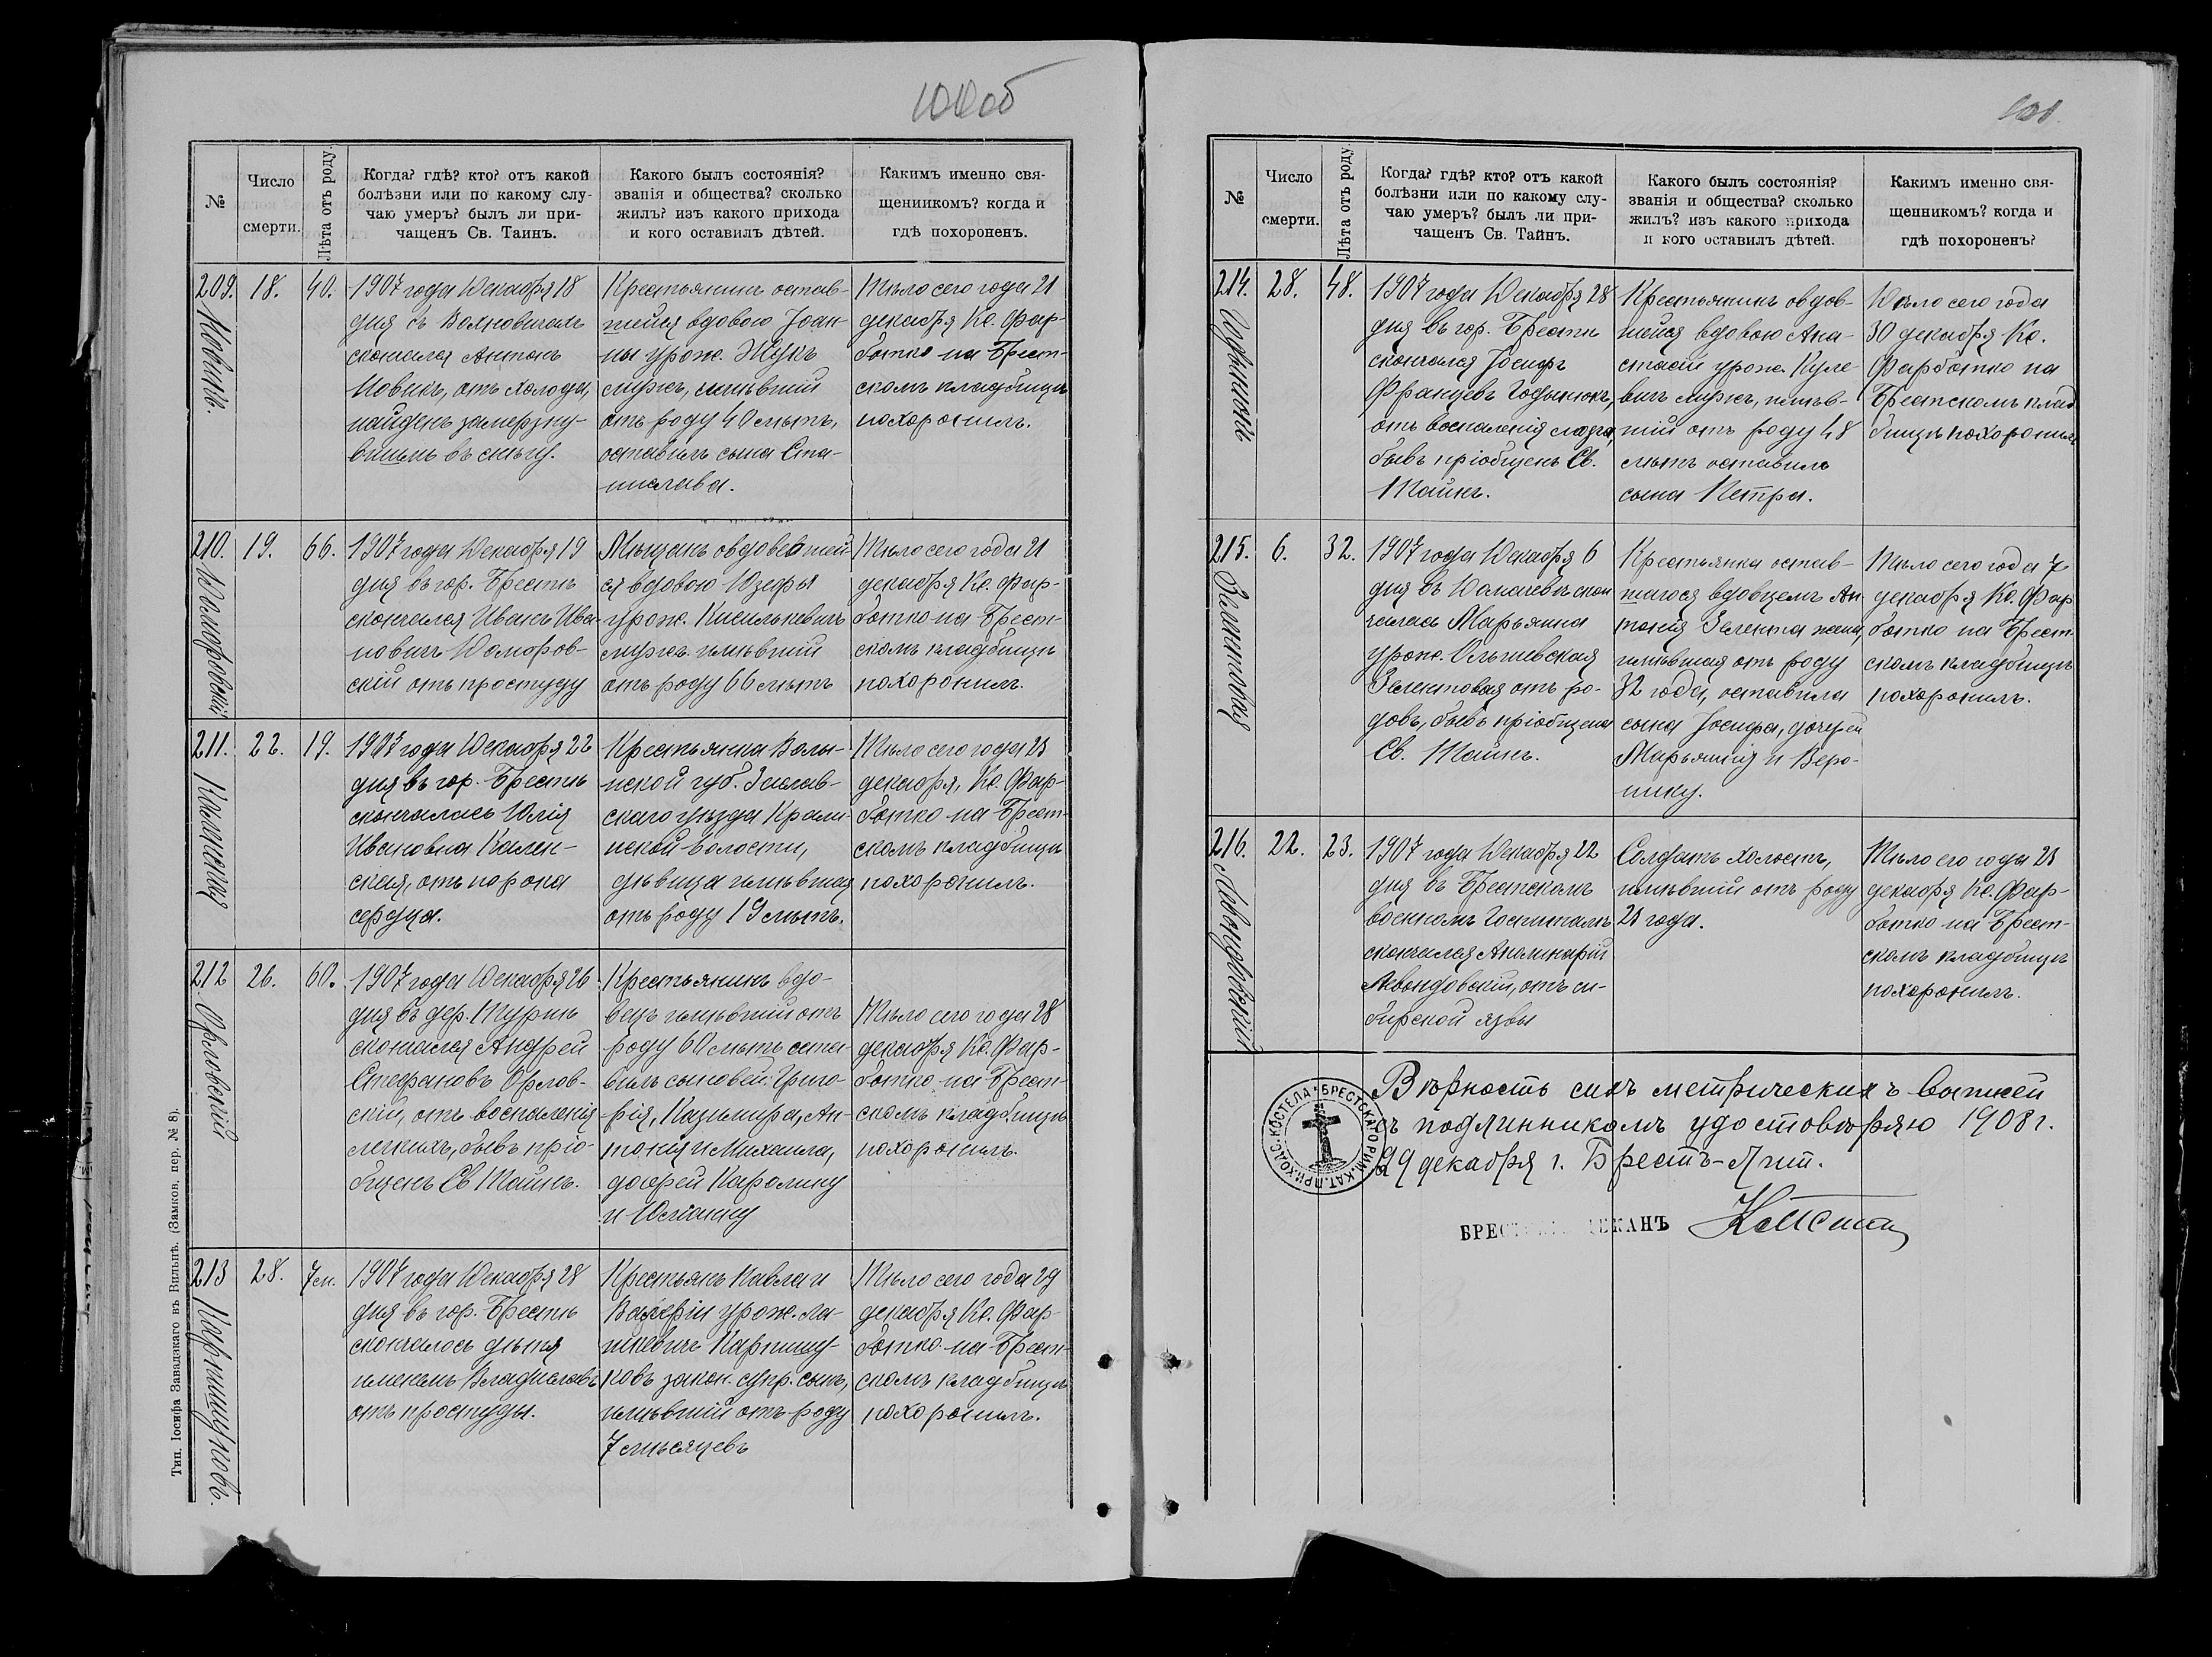 100об
№
Число
смерти.
Лѣта отъ роду.
Когда? гдѣ? кто? отъ какой
болѣзни или по какому слу-
чаю умеръ? былъ ли при-
чащенъ Св. Таинъ.
Какого былъ состоянія?
званія и общества? сколько
жилъ? изъ какого прихода
и кого оставилъ дѣтей.
Какимъ именно свя-
щенникомъ? когда и
гдѣ похороненъ.
209.
Новикъ.
18.
40.
1907 года Декабря 18
дня съ
скончался Антонъ
Новикъ, отъ холода,
найденъ замерзну-
вшимъ въ снѣгу.
Крестьянинъ остав-
шейся вдовою Іоан-
ны урож. Жукъ
мужъ, имѣвшій
отъ роду 40 лѣтъ,
оставилъ сына Ста-
нислава.
Тѣло сего года 21
декабря Кс. Фар-
ботко на Брест-
скомъ кладбищѣ
похоронилъ.
210.
Доморовскій
19.
66.
1907 года Декабря 19
дня въ гор. Брестѣ
скончался Иванъ Ива-
новичъ Доморов-
скій отъ простуды
Мѣщанъ овдовевшей-
ся вдовою Юзефы
урож. Кисилькевичъ
мужъ имѣвшій
отъ роду 66 лѣтъ
Тѣло сего года 21
декабря Кс. Фар-
ботко на Брест-
скомъ кладбищѣ
похоронилъ.
211.
Каменская
22.
19.
1907 года Декабря 22
дня въ гор. Брестѣ
скончалась Юлія
Ивановна Камен-
ская, отъ порока
сердца.
Крестьянка Волы-
нской губ. Заслав-
скаго уѣзда
волости,
дѣвица имѣвшая
отъ роду 19 лѣтъ.
Тѣло сего года 23
декабря, Кс. Фар-
ботко на Брест-
скомъ кладбищѣ
похоронилъ.
212
Орловскій
26.
60.
1907 года Декабря 26
дня въ дер. Турнѣ
скончался Андрей
Стефановъ Орлов-
скій, отъ воспаленія
легкихъ, бывъ прио-
бщенъ Св Тайнъ.
Крестьянинъ вдо-
вецъ имѣвшій отъ
роду 60 лѣтъ оста-
вилъ сыновей: Григо-
рія, Казиміра, Ан-
тонія и Михаила,
дочерей Каролину
и Юліанну
Тѣло сего года 28
декабря Кс. Фар-
ботко на Брест-
скомъ кладбищѣ
похоронилъ.
213
Карпишуковъ.
28.
7 м.
1907 года Декабря 28
дня въ гор. Брестѣ
скончалось дѣтя
именемъ Владиславъ
отъ простуды.
Крестьянъ Павла и
Валеріи урож. Ла-
шкевичъ Карпишу-
ковъ закон. супр. сынъ,
имѣвшій отъ роду
7 мѣсяцевъ
Тѣло сего года 29
декабря Кс. Фар-
ботко на Брест-
скомъ кладбищѣ
похоронилъ.
Тип. Іосифа Завадзкаго въ Вильнѣ. (Замков. пер. № 8).
101.
№
Число
смерти.
Лѣта отъ роду
Когда? гдѣ? кто? отъ какой
болѣзни или по какому слу-
чаю умеръ? былъ ли при-
чащенъ Св. Тайнъ.
Какого былъ состоянія?
званія и общества? сколько
жилъ? изъ какого прихода
и кого оставилъ дѣтей.
Какимъ именно свя-
щенникомъ? когда и
гдѣ похороненъ?
214.
28.
48.
1907 года Декабря 28
дня въ гор. Брестѣ
скончался Іосифъ
Францевъ Годынюкъ,
отъ воспаленія мозга,
бывъ пріобщенъ Св.
Тайнъ.
Крестьянинъ овдов-
шейся вдовою Ана-
стасіи урож. Куле-
вичъ мужъ, имѣв-
шій отъ роду 48
лѣтъ оставилъ
сына Петра.
Тѣло сего года
30 декабря Кс.
Фарботко на
Брестскомъ клад
бищѣ похоронилъ
215.
6.
32.
1907 года Декабря 6
дня въ Домачевѣ скон
чалась Марьянна
урож. Ольшевская
отъ ро-
довъ, бывъ пріобщена
Св. Тайнъ.
Крестьянка остав-
шагося вдовцемъ Ан-
тонія жена,
имѣвшая отъ роду
32 года, оставила
сына Іосифа, дочерей
Марьянну и Веро-
нику.
Тѣло сего года 7
декабря Кс. Фар
ботко на Брест-
скомъ кладбищѣ
похоронилъ.
216.
Левандовскій
22.
23.
1907 года Декабря 22
дня въ Брестскомъ
военномъ Госпиталѣ
скончался Аполинарій
Левандовскій, отъ си-
бирской язвы
Солдатъ холостъ,
имѣвшій отъ роду
23 года.
Тѣло его года 23
декабря Кс. Фар-
ботко на Брест-
скомъ кладбищѣ
похоронилъ.
БРЕСТСКАГО РИМ.-КАТ. ПРИХОДС. КОСТЕЛА
Вѣрность сихъ метрическихъ записей
съ подлинникомъ удостовѣряю 1908 г.
29 декабря г. Брестъ-Лит.
БРЕСТ ДЕКАНЪ